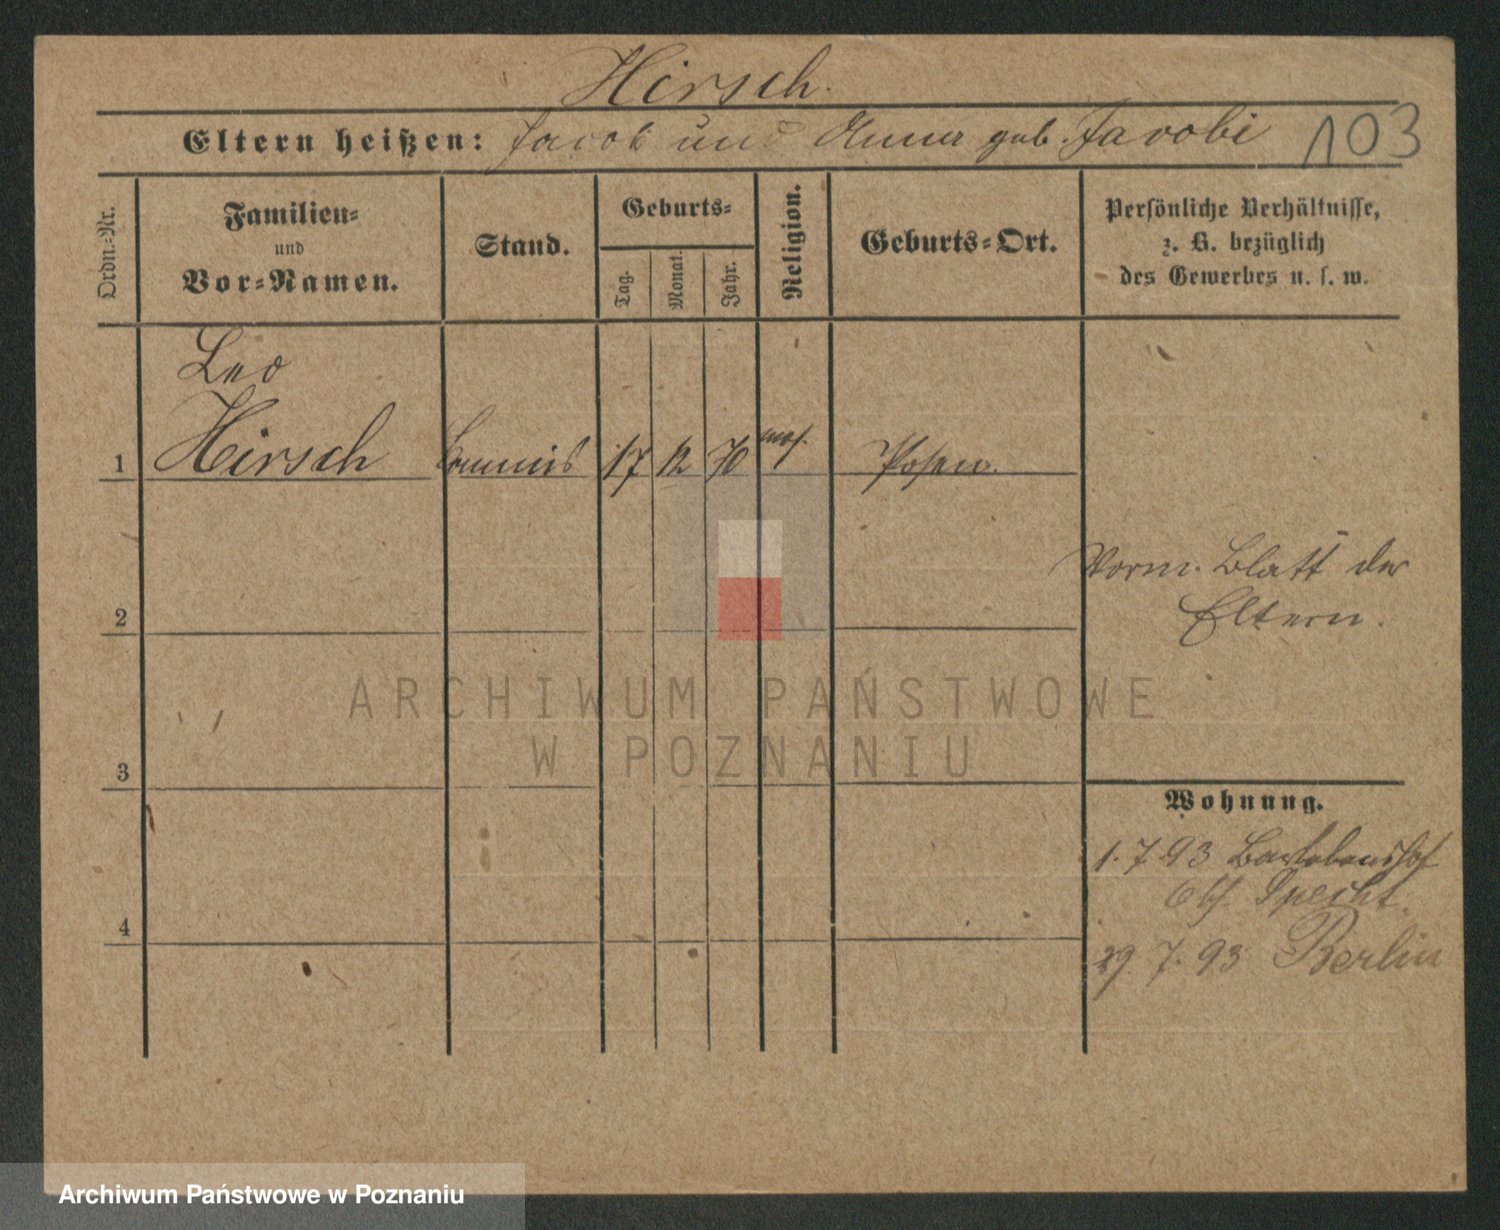 Hirsch.
Eltern heißen: Jacob und Anna geb. Jacobi
103
Ordn.=Nr.
Familien=
und
Vor=Namen.
Stand.
Geburts=
Tag.
Monat.
Jahr.
Religion.
Geburts=Ort.
Persönliche Verhältnisse,
z. B. bezüglich
des Gewerbes u. s. w.
Leo
1 Hirsch Commis 17 12 70 mos. Posen.
Vorm. Blatt der
Eltern.
2
ARCHIWUM PAŃSTWOWE
W POZNANIU
3
Wohnung.
1.7.93
bh. Specht.
4
29 7. 93 Berlin
Archiwum Państwowe w Poznaniu